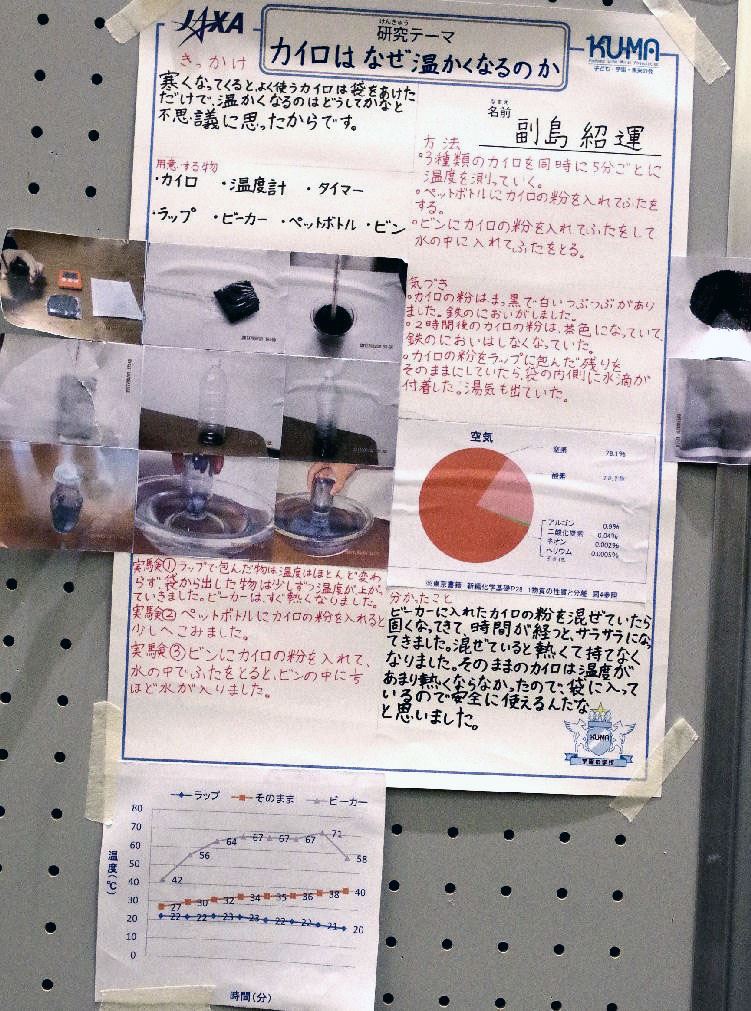 JAXA
けんきゅう
研究テーマ
カイロはなぜ温かくなるのか
KU-MA
子ども・宇宙・未来の会
きっかけ
寒くなってくると、よく使うカイロは袋をあけた
だけで、温かくなるのはどうしてかなと
不思議に思ったからです。
なまえ
名前
副島 紹運
用意する物
・カイロ ・温度計 ・タイマー
・ラップ ・ビーカー ・ペットボトル ・ビン
方法
○3種類のカイロを同時に5分ごとに
温度を測っていく。
○ペットボトルにカイロの粉を入れてふたを
する。
○ビンにカイロの粉を入れてふたをして
水の中に入れてふたをとる。
気づき
○カイロの粉はまっ黒で白いつぶつぶがあり
ました。鉄のにおいがしました。
○2時間後のカイロの粉は、茶色になっていて、
鉄のにおいはしなくなっていた。
○カイロの粉をラップに包んだ残りを
そのままにしていたら、袋の内側に水滴が
付着した。湯気も出ていた。
空気
窒素 78.1%
酸素
アルゴン 0.9%
二酸化炭素 0.04%
ネオン 0.002%
ヘリウム 0.0005%
その他
※東京書籍 新編化学基礎P28 1物質の性質と分離 図4参照
実験① ラップで包んだ物は温度はほとんど変わ
らず、袋から出した物は少しずつ温度が上がっ
ていきました。ビーカーは、すぐ熱くなりました。
実験② ペットボトルにカイロの粉を入れると
少しへこみました。
実験③ ビンにカイロの粉を入れて、
水の中でふたをとると、ビンの中に
ほど水が入りました。
分かったこと
ビーカーに入れたカイロの粉を混ぜていたら
固くなってきて、時間が経つと、サラサラになっ
てきました。混ぜていると熱くて持てなく
なりました。そのままのカイロは温度が
あまり熱くならなかったので、袋に入って
いるので安全に使えるんだな
と思いました。
KUMA
宇宙の学校
ラップ そのまま ビーカー
温度(℃)
80
70
60
50
40
30
20
10
0
42 56 64 67 67 67 71 58
27 30 32 34 35 36 38 40
22 22 23 23 22 22 21 20
時間(分)